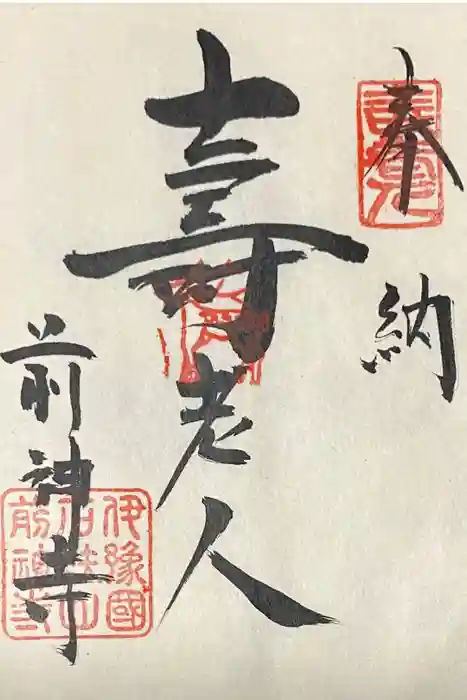 奉納
壽老人
前神寺
伊豫國
石鈇山
前神寺